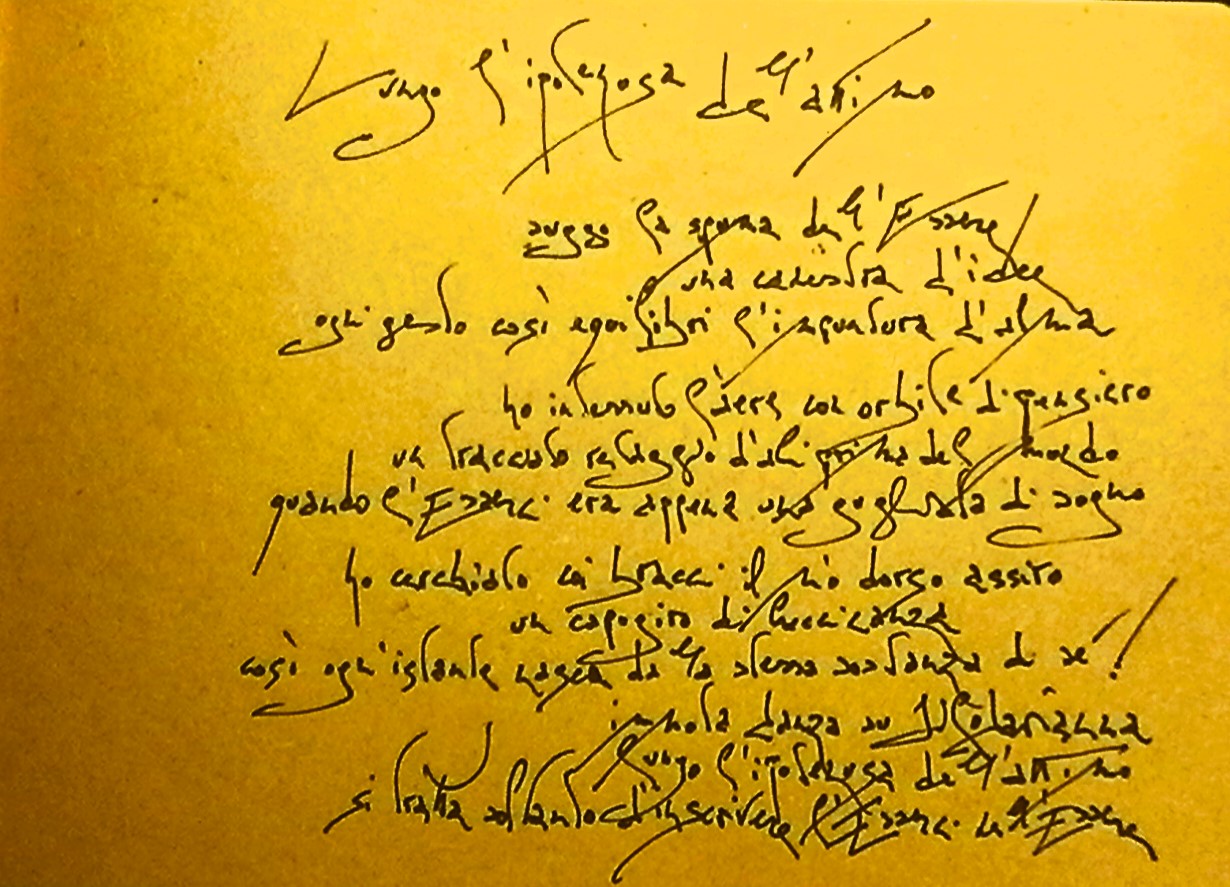 Lungo l'ipotenusa dell'attimo
suggo la spuma dell'Essere
una canestra d'idee
ogni gesto così equilibri l'impuntura d'alma
ho intessuto l'aere con orbite di pensiero
un tracciato retaggio d'ali prima del mondo
quando l'Esserci era appena una gugliata di sogno
ho cerchiato coi bracci il mio dorso assito
un capogiro di luccicanza
così ogn'istante nasca da la stessa sostanza di sé!
immota danza su
lungo l'ipotenusa dell'attimo
si tratta soltanto d'inscrivere l'Esserci nell'Essere